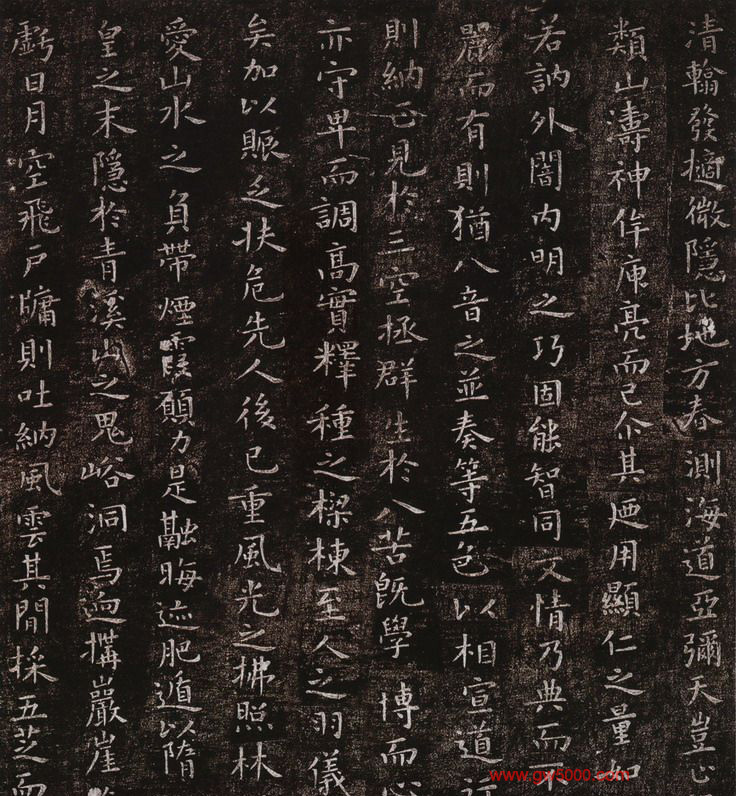 清翰發擿微隱比地方春測海道亞彌天豈止
類山濤神侔庾亮而已尒其迺用顯仁之量如
若訥外闇內明之巧固能智同文情乃典而不
麗而有則猶八音之並奏等五色以相宣道
則納正見於三空拯群生於八苦旣學博而心
亦守卑而調高實釋種之樑棟至人之羽儀
矣加以賑乏扶危先人後已重風光之拂照林
愛山水之負帶煙霞願力是融晦迹肥遁以隋
皇之末隱於青溪山之鬼峪洞焉迺搆巖崖
虧日月空飛戶牖則吐納風雲其間採五芝而
www.gw5000.com